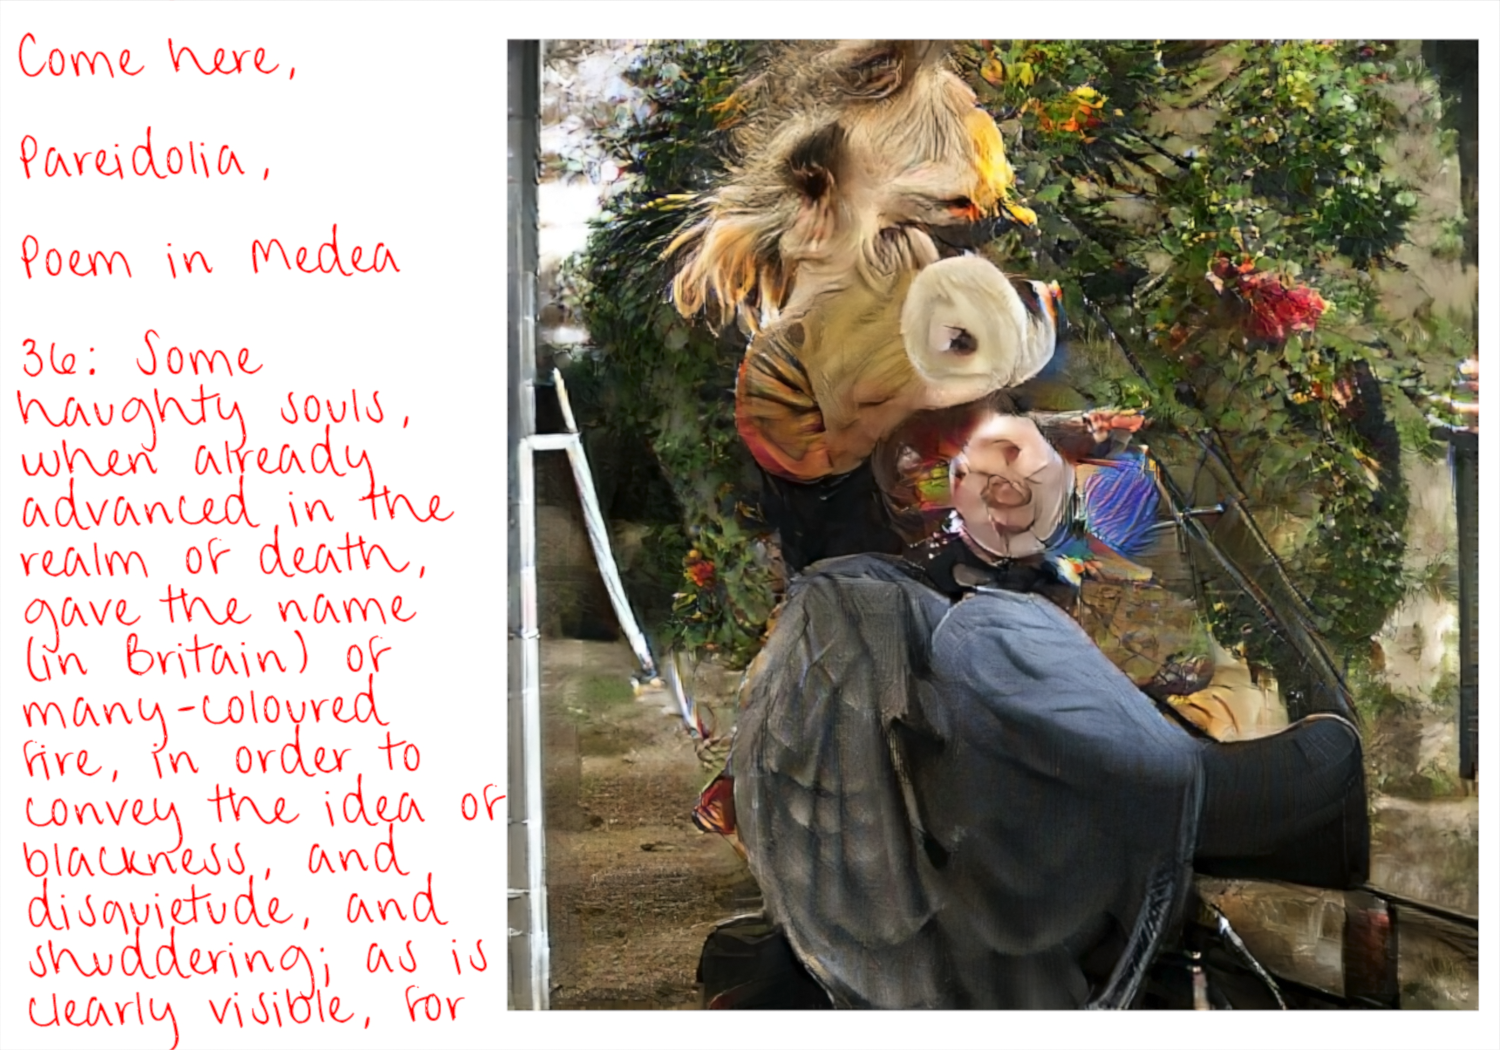 Come here,
Pareidolia,
Poem in Medea
36: Some
naughty souls,
when already
advanced in the
realm of death,
gave the name
(in Britain) of
many-coloured
fire, in order to
convey the idea of
blackness, and
disquietude, and
shuddering; as is
clearly visible, for